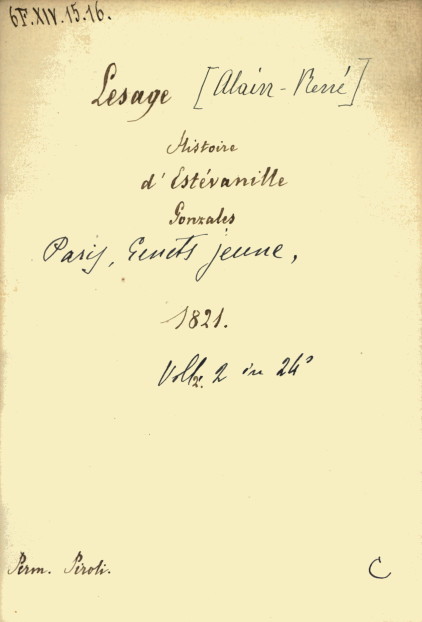 6F.XIV.15.16.
Lesage [Alain-René]
Histoire
d'Estévanille
Gonzales
Paris, Genets jeune,
1821.
Voll. 2 in 24°
Perm. Piroli.
C